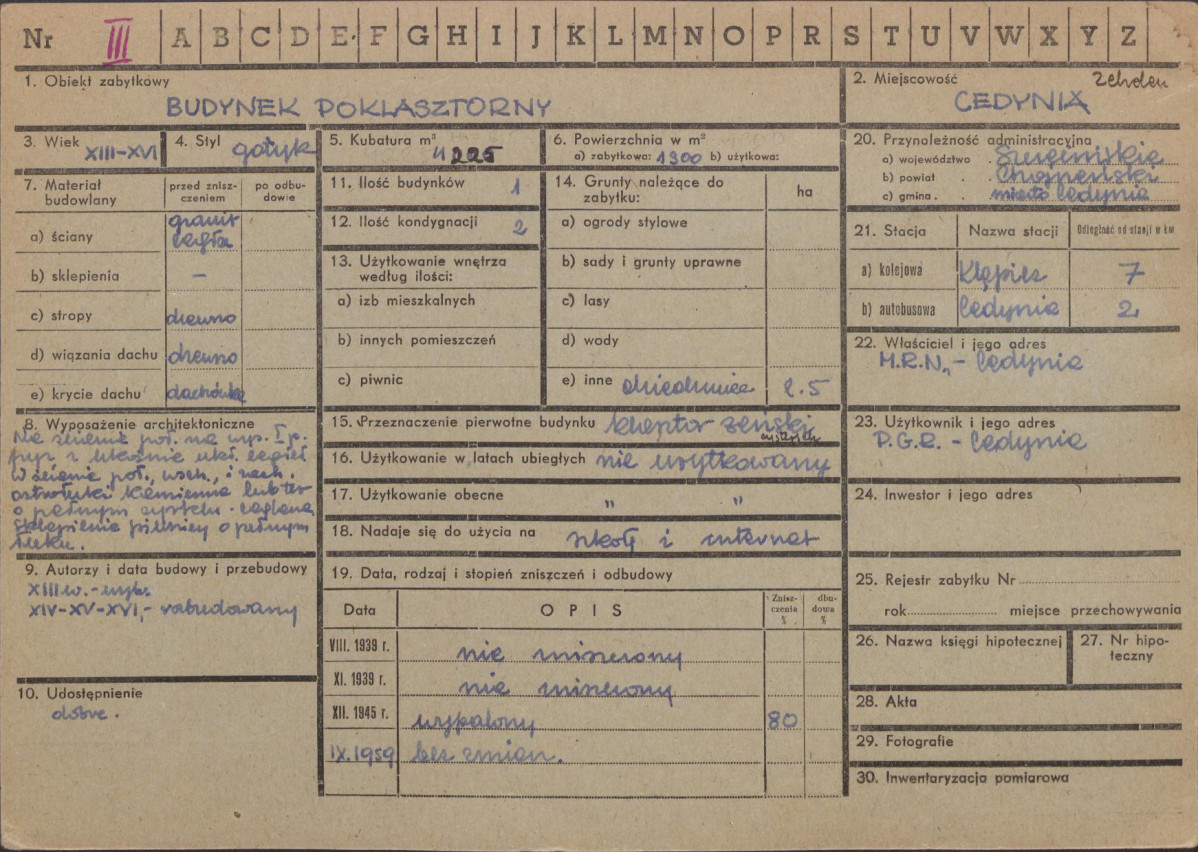 Nr III A B C D E F G H I J K L M N O P R S T U V W X Y Z
1. Obiekt zabytkowy
BUDYNEK POKLASZTORNY
2. Miejscowość Zehden
CEDYNIA
3. Wiek XIII-XVI
4. Styl gotyk
5. Kubatura m³
4225
6. Powierzchnia w m²
a) zabytkowa: 1300 b) użytkowa:
7. Materiał budowlany
przed zniszczeniem
po odbudowie
a) ściany granit cegła
b) sklepienia –
c) stropy drewno
d) wiązania dachu drewno
e) krycie dachu dachówka
8. Wyposażenie architektoniczne
Na ścianie poł. na wys. I p.
fryz z ukośnie ukł. cegieł
W ścianie poł., wsch., i zach.
ostrołuki kamienne lub też
o pełnym - ceglane
Sklepienie piwnicy o pełnym
łuku.
9. Autorzy i data budowy i przebudowy
XIII w. - wyb.
XIV-XV-XVI, -
10. Udostępnienie
dobre.
11. Ilość budynków 1
12. Ilość kondygnacji 2
13. Użytkowanie wnętrza
według ilości:
a) izb mieszkalnych
b) innych pomieszczeń
c) piwnic
14. Grunty należące do
zabytku:
ha
a) ogrody stylowe
b) sady i grunty uprawne
c) lasy
d) wody
e) inne dziedziniec 2.5
15. Przeznaczenie pierwotne budynku klasztor żeński
cysterek
16. Użytkowanie w latach ubiegłych nie użytkowany
17. Użytkowanie obecne " "
18. Nadaje się do użycia na szkołę i internat
19. Data, rodzaj i stopień zniszczeń i odbudowy
Data
OPIS
Zniszczenia %
dbudowa %
VIII. 1939 r. nie zniszczony
XI. 1939 r. nie zniszczony
XII. 1945 r. wypalony 80
IX.1959 bez zmian.
20. Przynależność administracyjna
a) województwo Szczecińskie
b) powiat Chojneński
c) gmina miasto Cedynia
21. Stacja
Nazwa stacji
Odległość od stacji w km
a) kolejowa Kłępicz 7
b) autobusowa Cedynia 2
22. Właściciel i jego adres
M.R.N. - Cedynia
23. Użytkownik i jego adres
P.G.R. - Cedynia
24. Inwestor i jego adres
25. Rejestr zabytku Nr
rok miejsce przechowywania
26. Nazwa księgi hipotecznej
27. Nr hipoteczny
28. Akta
29. Fotografie
30. Inwentaryzacja pomiarowa